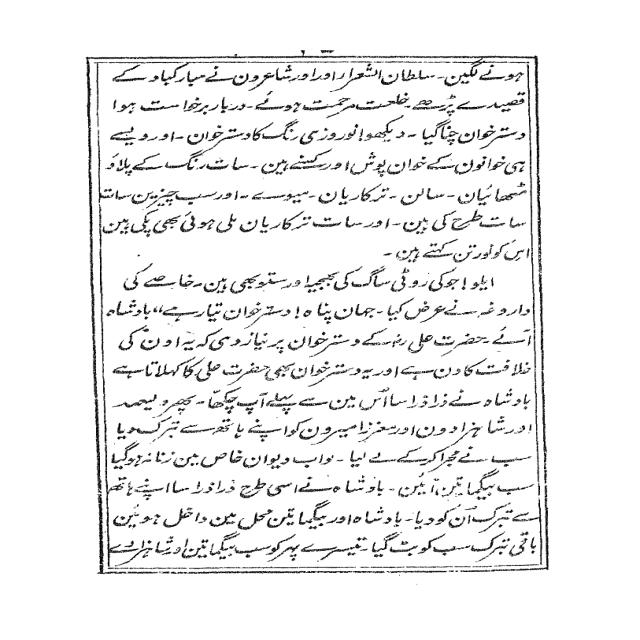 ہونے لگین۔ سلطان الشعرا اور اور شاعرون نے مبارکباد کے
قصیدے پڑھے۔ خلعت مرحمت ہوئے۔ دربار برخواست ہوا
دسترخوان چنا گیا۔ دیکھو! نوروزی رنگ کا دسترخوان۔ اور ویسے
ہی خوانون کے خوان پوش اور کسنے ہین۔ سات رنگ کے پلاؤ
مٹھائیان۔ سالن۔ ترکاریان۔ میوے۔ اور سب چیزین سات
سات طرح کی ہین۔ اور سات ترکاریان ملی ہوئی بھی پکی ہین
اس کو نورتن کہتے ہین۔
ایلو! جو کی روٹی ساگ کی بھجیا اور ستو بھی ہین۔ خاصے کی
داروغہ نے عرض کیا۔ جہان پناہ! دسترخوان تیار ہے" بادشاہ
آئے۔ حضرت علی رض کے دسترخوان پر نیاز دی کہ یہ اون کی
خلافت کا دن ہے اور یہ دسترخوان بھی حضرت علی کا کہلاتا ہے
بادشاہ نے ذرا ذرا سا اس مین سے پہلے آپ چکھا۔ پھر ولیعہد
اور شاہزادون اور معزز امیرون کو اپنے ہاتھ سے تبرک دیا
سب نے مجرا کر کے لے لیا۔ نواب دیوان خاص مین زنانہ ہو گیا
سب بیگماتین آئین۔ بادشاہ نے اسی طرح ذرا ذرا سا اپنے ہاتھ
سے تبرک ان کو دیا۔ بادشاہ اور بیگماتین محل مین داخل ہوئین
باقی تبرک سب کو بٹ گیا۔ تیسرے پہر کو سب بیگماتین اور شاہزادے